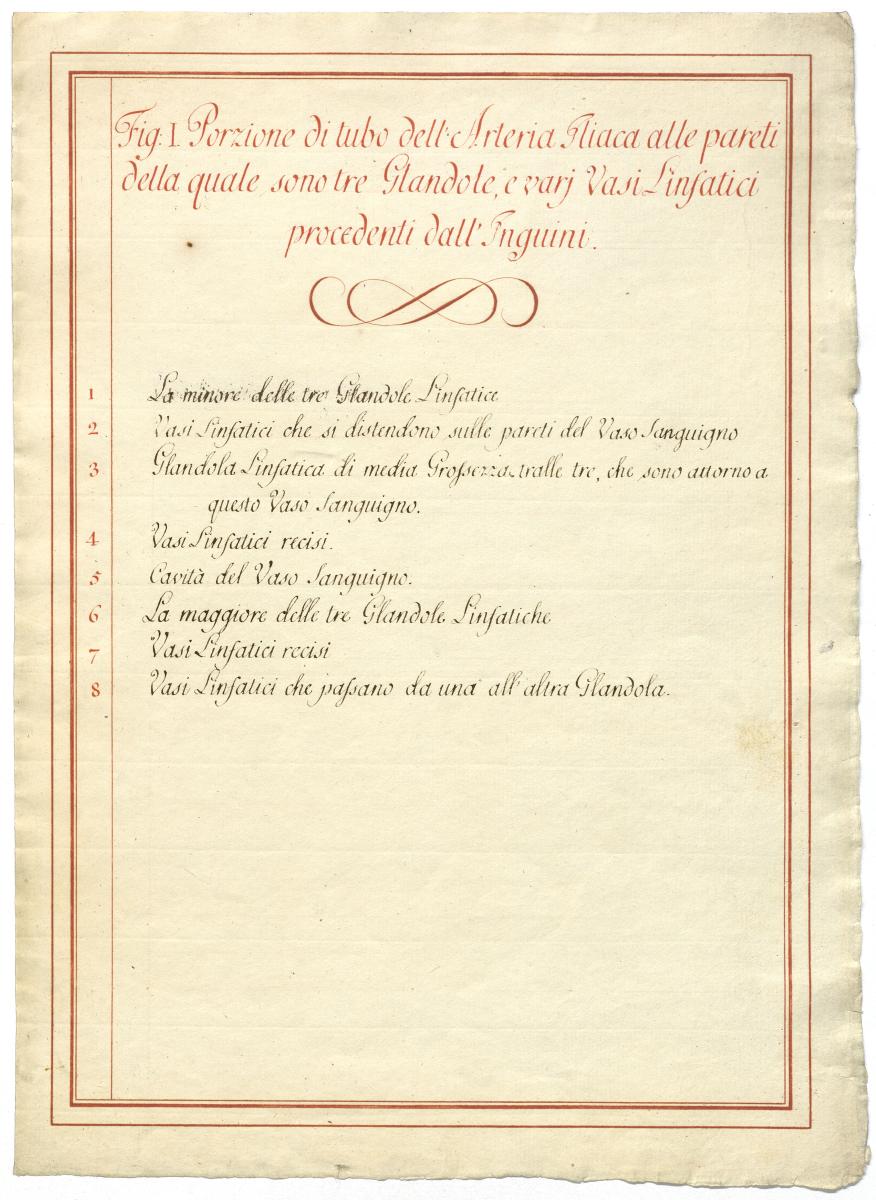 Fig: I. Porzione di tubo dell'Arteria Iliaca alle pareti
della quale sono tre Glandole, e varj Vasi Linfatici
procedenti dall'Inguini.
1 La minore delle tre Glandole Linfatice
2 Vasi Linfatici che si distendono sulle pareti del Vaso Sanguigno
3 Glandola Linfatica di media Grossezza tralle tre, che sono attorno a
questo Vaso Sanguigno.
4 Vasi Linfatici recisi.
5 Cavità del Vaso Sanguigno.
6 La maggiore delle tre Glandole Linfatiche
7 Vasi Linfatici recisi
8 Vasi Linfatici che passano da una all'altra Glandola.